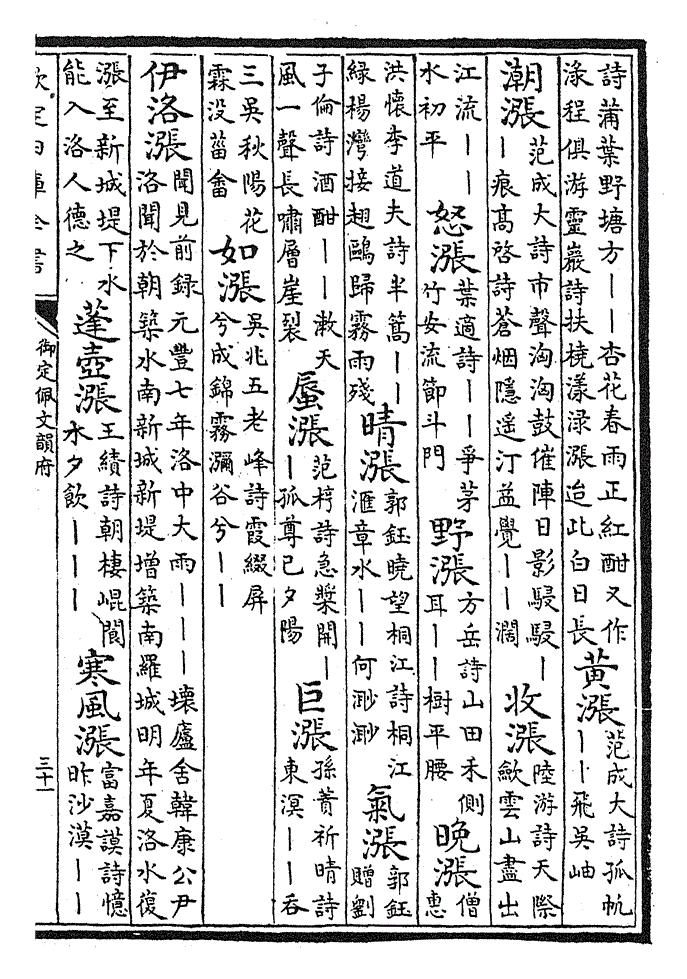 詩蒲葉野塘方——杏花春雨正紅酣又作
淥程俱游靈巖詩扶橈漾淥漲迨此白日長
黃漲
范成大詩孤帆
——飛吳岫
潮漲
范成大詩市聲洶洶鼓催陣日影駸駸—
—痕高啓詩蒼烟隱遥汀益覺——濶
收漲
陸游詩天際
歛雲山盡出
江流——
水初平
怒漲
葉適詩——爭茅
竹女流節斗門
野漲
方岳詩山田禾側
耳——樹平腰
晚漲
僧
惠
洪懷李道夫詩半篙——
緑楊灣接趐鷗歸霧雨殘
晴漲
郭鈺曉望桐江詩桐江
滙章水——何渺渺
氣漲
郭鈺
贈劉
子倫詩酒酣——漱天
風一聲長嘯層崖裂
蜃漲
范梈詩急槳開—
—孤尊已夕陽
巨漲
孫蕡祈晴詩
東溟——吞
三吳秋陽花
霖没菑畬
如漲
吳兆五老峰詩霞綴屏
兮成錦霧瀰谷兮——
伊洛漲
聞見前録元豐七年洛中大雨———壞廬舍韓康公尹
洛聞於朝築水南新城新堤增築南羅城明年夏洛水復
漲至新城堤下水
能入洛人德之
蓬壺漲
王績詩朝棲崐閬
水夕飲———
寒風漲
富嘉謨詩憶
昨沙漠——
欽定四庫全書
御定佩文韻府
三十一